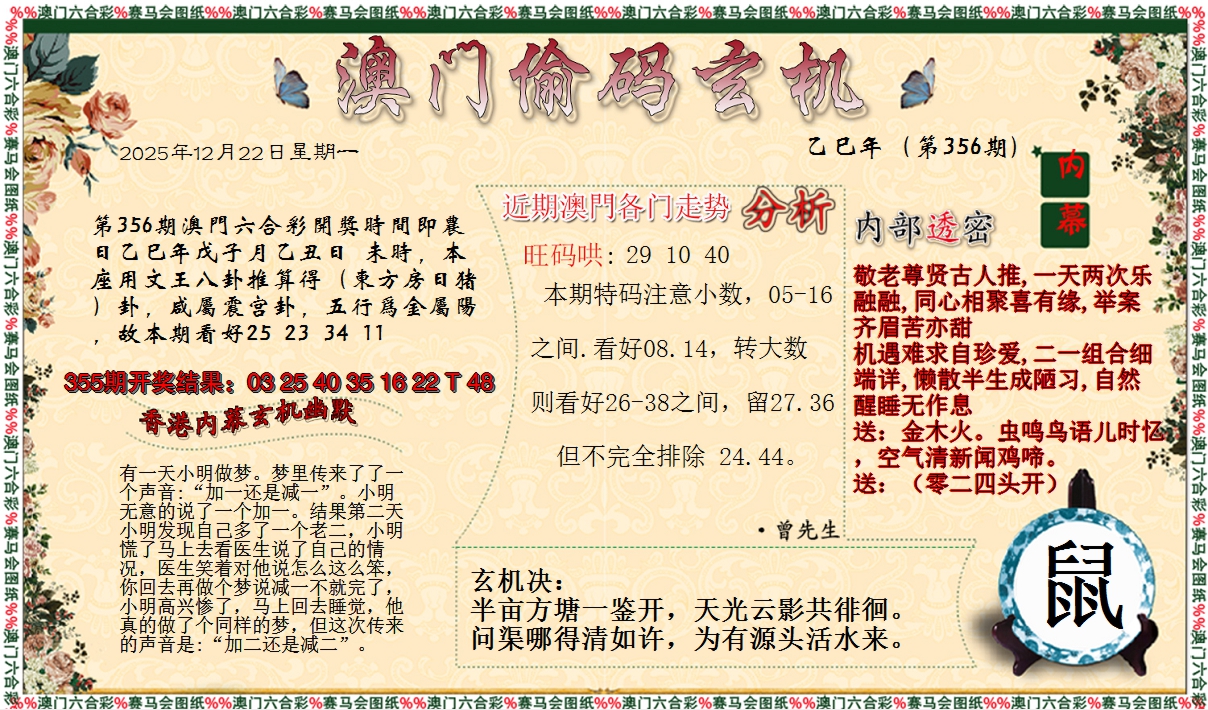 %%澳门六合彩%赛马会图纸%%澳门六合彩%赛马会图纸%%澳门六合彩%赛马会图纸%%澳门六合彩%赛马会图纸%%澳门六合彩%赛马会图纸%%澳门六合彩%赛马会图纸%%
澳门偷码玄机
2025年12月22日星期一
乙巳年（第356期）
内
幕
第356期澳門六合彩開獎時間即農
日乙巳年戊子月乙丑日 未時，本
座用文王八卦推算得（東方房日猪
）卦，咸屬震宫卦，五行爲金屬陽
，故本期看好25 23 34 11
355期开奖结果：03 25 40 35 16 22 T 48
香港内幕玄机幽默
有一天小明做梦。梦里传来了了一
个声音:“加一还是减一”。小明
无意的说了一个加一。结果第二天
小明发现自己多了一个老二，小明
慌了马上去看医生说了自己的情
况，医生笑着对他说怎么这么笨，
你回去再做个梦说减一不就完了，
小明高兴惨了，马上回去睡觉，他
真的做了个同样的梦，但这次传来
的声音是:“加二还是减二”。
近期澳門各门走势 分析
旺码哄: 29 10 40
本期特码注意小数，05-16
之间.看好08.14，转大数
则看好26-38之间，留27.36
但不完全排除 24.44。
·曾先生
内部透密
敬老尊贤古人推,一天两次乐
融融,同心相聚喜有缘,举案
齐眉苦亦甜
机遇难求自珍爱,二一组合细
端详,懒散半生成陋习,自然
醒睡无作息
送：金木火。虫鸣鸟语儿时忆
，空气清新闻鸡啼。
送：（零二四头开）
玄机决：
半亩方塘一鉴开，天光云影共徘徊。
问渠哪得清如许，为有源头活水来。
鼠
%%澳门六合彩%赛马会图纸%%澳门六合彩%赛马会图纸%%澳门六合彩%赛马会图纸%%澳门六合彩%赛马会图纸%%澳门六合彩%赛马会图纸%%澳门六合彩%赛马会图纸%%